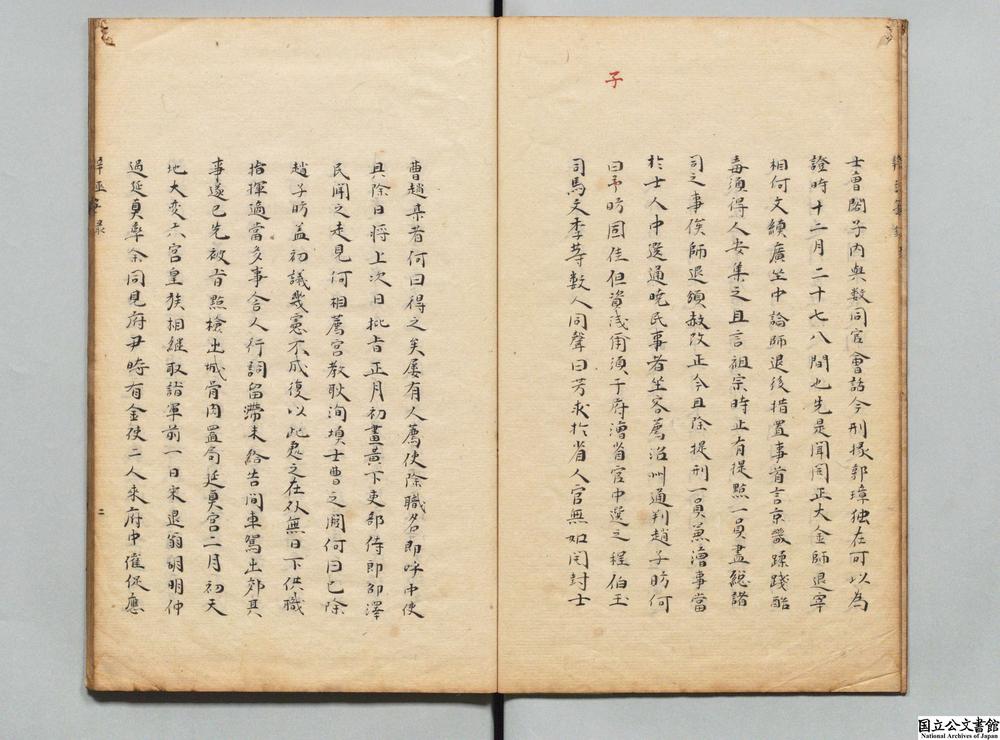 子
士會閤子內與数同官會話今刑掾郭璋独在可以為
證時十二月二十七八間也先是聞罔正大金師退宰
相何文縝廣坐中論師退後措置事首言京畿蹂踐酷
毒須得人安集之且言祖宗時止有提點一員盡総諸
司之事俟師退頒赦改正今且除提刑一員兼漕事當
於士人中選通曉民事者坐客薦沿州通判趙子昉何
曰子昉固佳但資浅甭須于府漕省官中選之程伯玉
司馬文季等數人同聲曰芳求於省人官無如開封士
曹趙某者何曰得之矣屢有人薦使除職名即呼中使
具除日將上次日批旨正月初畫黃下吏部侍郎邵澤
民聞之走見何相薦宮教耿洵填士曹之闕何曰已除
趙子昉盖初議幾憲不成復以此處之在仪無日下供職
指揮適當多事舍人行詞留滯未給告間車駕出郊其
事遂已先被旨點檢出城膏肉置局延真宮二月初天
地大変六宮皇族相継取詣軍前一日宋退翁胡明仲
過延真率余同見府尹時有金使二人来府中催促應
辛亟筆錄
二
国立公文書館
National Archives of Japan